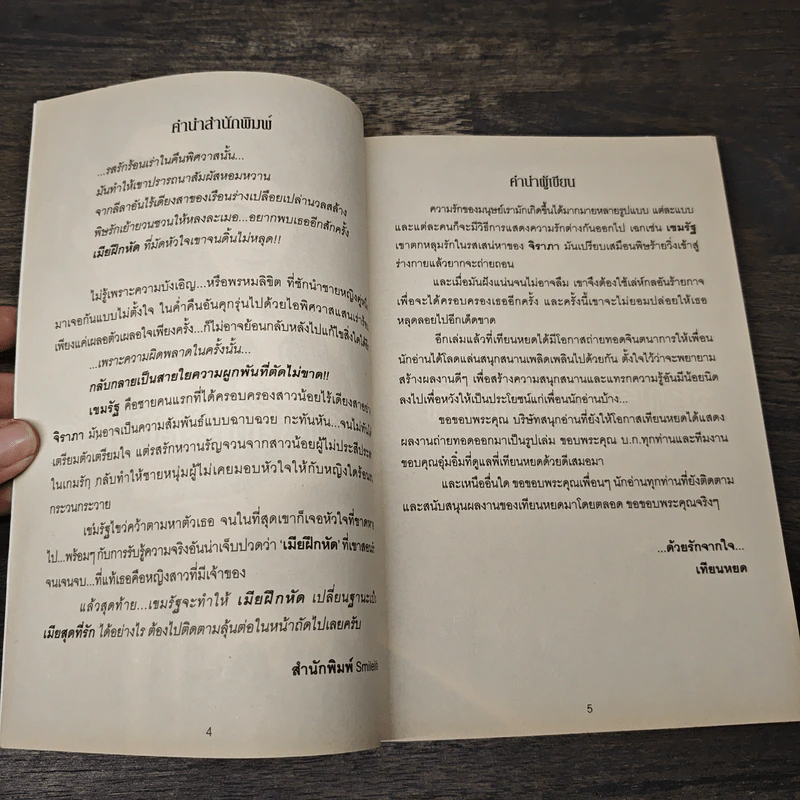 คำนำสำนักพิมพ์
...รสรักร้อนเร่าในคืนพิศวาสนั้น...
มันทำให้เขาปรารถนาสัมผัสหอมหวาน
จากลีลาอันไร้เดียงสาของเรือนร่างเปลือยเปล่านวลสล้าง
พิษรักเย้ายวนชวนให้หลงละเมอ...อยากพบเธออีกสักครั้ง
เมียฝึกหัด ที่มัดหัวใจเขาจนดิ้นไม่หลุด!!
ไม่รู้เพราะความบังเอิญ...หรือพรหมลิขิต ที่ชักนำชายหญิงคู่หนึ่ง
มาเจอกันแบบไม่ตั้งใจ ในค่ำคืนอันคุกรุ่นไปด้วยไอพิศวาสแสนเร่าร้อน
เพียงแค่เผลอตัวเผลอใจเพียงครั้ง...ก็ไม่อาจย้อนกลับหลังไปแก้ไขสิ่งใดได้อีก
...เพราะความผิดพลาดในครั้งนั้น...
กลับกลายเป็นสายใยความผูกพันที่ตัดไม่ขาด!!
เขมรัฐ คือชายคนแรกที่ได้ครอบครองสาวน้อยไร้เดียงสาอย่าง
จิราภา มันอาจเป็นความสัมพันธ์แบบฉาบฉวย กะทันหัน...จนไม่ทันได้
เตรียมตัวเตรียมใจ แต่รสรักหวานรัญจวนจากสาวน้อยผู้ไม่ประสีประสา
ในเกมรัก กลับทำให้ชายหนุ่มผู้ไม่เคยมอบหัวใจให้กับหญิงใดร้อนรน
กระวนกระวาย
เขมรัฐไขว่คว้าตามหาตัวเธอ จนในที่สุดเขาก็เจอหัวใจที่ขาดหาย
ไป...พร้อมๆ กับการรับรู้ความจริงอันน่าเจ็บปวดว่า 'เมียฝึกหัด' ที่เขาสอนรัก
จนเจนจบ...ที่แท้เธอคือหญิงสาวที่มีเจ้าของ
แล้วสุดท้าย...เขมรัฐจะทำให้ เมียฝึกหัด เปลี่ยนฐานะเป็น
เมียสุดที่รัก ได้อย่างไร ต้องไปติดตามลุ้นต่อในหน้าถัดไปเลยครับ
สำนักพิมพ์
4
คำนำผู้เขียน
ความรักของมนุษย์เรามักเกิดขึ้นได้มากมายหลายรูปแบบ แต่ละแบบ
และแต่ละคนก็จะมีวิธีการแสดงความรักต่างกันออกไป เฉกเช่น เขมรัฐ
เขาตกหลุมรักในรสเสน่หาของ จิราภา มันเปรียบเสมือนพิษร้ายวิ่งเข้าสู่
ร่างกายแล้วยากจะถ่ายถอน
และเมื่อมันฝังแน่นจนไม่อาจลืม เขาจึงต้องใช้เล่ห์กลอันร้ายกาจ
เพื่อจะได้ครอบครองเธออีกครั้ง และครั้งนี้เขาจะไม่ยอมปล่อยให้เธอ
หลุดลอยไปอีกเด็ดขาด
อีกเล่มแล้วที่เทียนหยดได้มีโอกาสถ่ายทอดจินตนาการให้เพื่อน
นักอ่านได้โลดแล่นสนุกสนานเพลิดเพลินไปด้วยกัน ตั้งใจไว้ว่าจะพยายาม
สร้างผลงานดีๆ เพื่อสร้างความสนุกสนานและแทรกความรู้อันมีน้อยนิด
ลงไปเพื่อหวังให้เป็นประโยชน์แก่เพื่อนนักอ่านบ้าง...
ขอขอบพระคุณ บริษัทสนุกอ่านที่ยังให้โอกาสเทียนหยดได้แสดง
ผลงานถ่ายทอดออกมาเป็นรูปเล่ม ขอบพระคุณ บ.ก.ทุกท่านและทีมงาน
ขอบคุณอุ่มอิ่มที่ดูแลพี่เทียนหยดด้วยดีเสมอมา
และเหนืออื่นใด ขอขอบพระคุณเพื่อนๆ นักอ่านทุกท่านที่ยังติดตาม
และสนับสนุนผลงานของเทียนหยดมาโดยตลอด ขอขอบพระคุณจริงๆ
...ด้วยรักจากใจ...
เทียนหยด
5